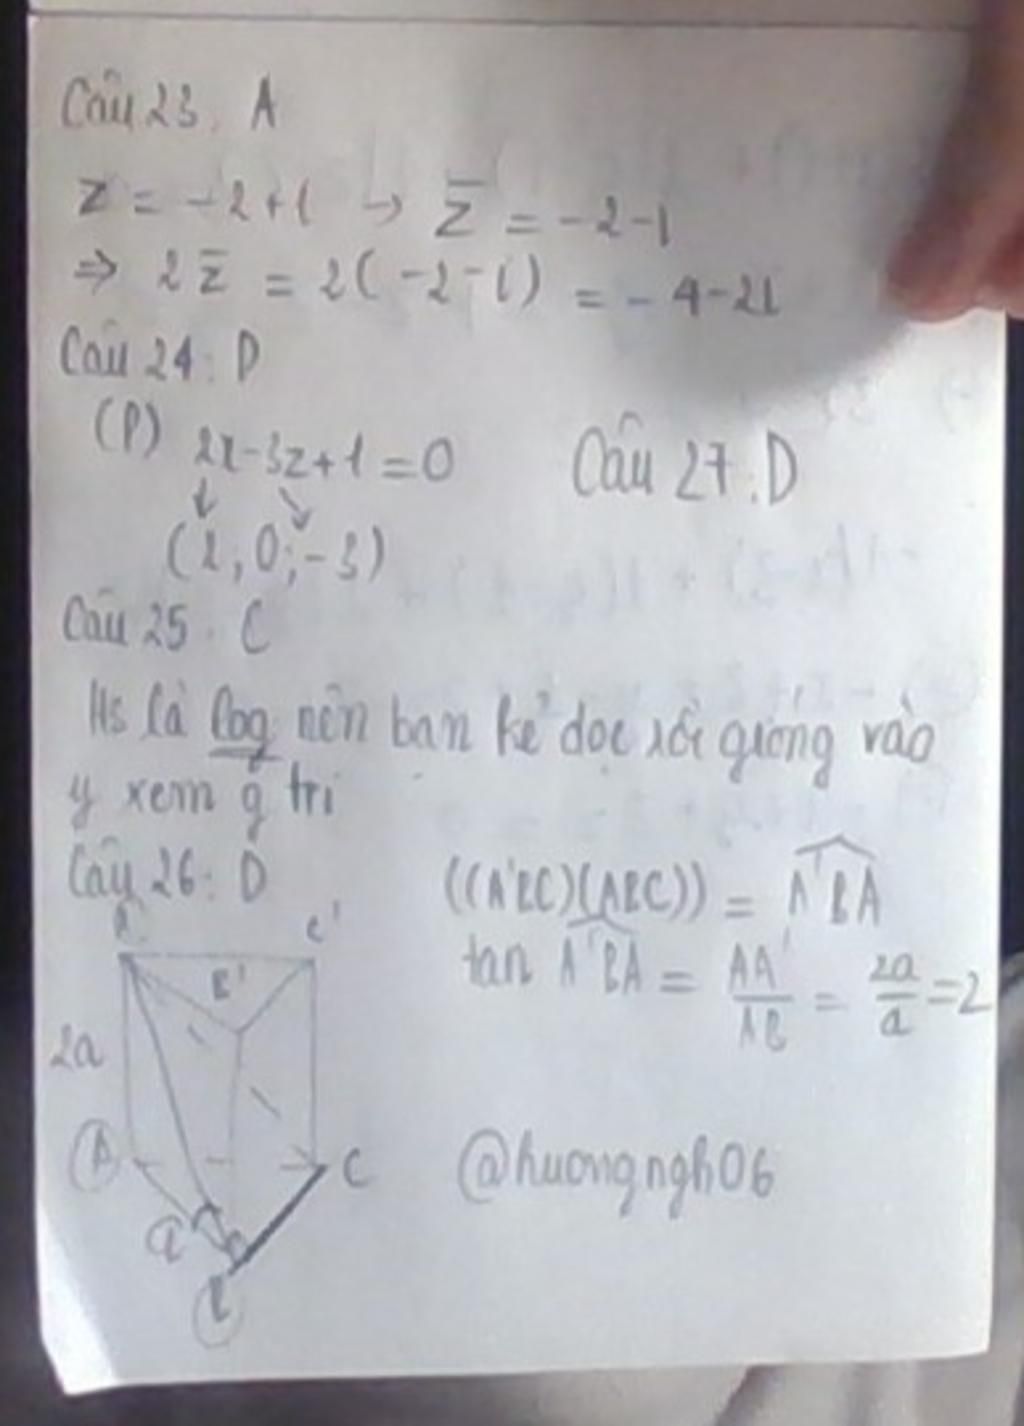 Câu 23. A
z = -2+i → z̅ = -2-i
⇒ 2z̅ = 2(-2-i) = -4-2i
Câu 24: D
(P) 2x-3z+1=0
(2;0;-3)
Câu 27:D
Câu 25. C
Hs là log nên bạn kẻ dọc rồi gióng vào
y xem g trị
Câu 26: D
((A'BC)(ABC)) = A'BA
tan A'BA = AA'/AB = 2a/a =2
A' C'
B'
2a
A C
a
B
@huongngh06